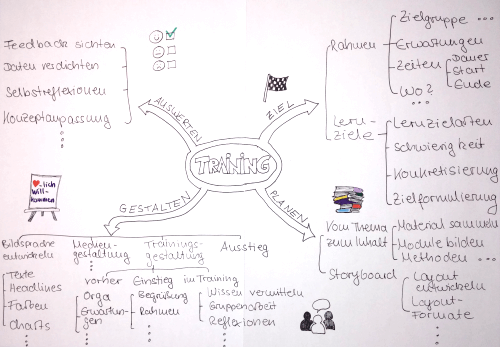 TRAINING
ZIEL
Rahmen
Zielgruppe ...
Erwartungen
Zeiten
Dauer
Start
Ende
Wo?
...
Lern-
ziele
Lernzielarten
Schwierigkeit
Konkretisierung
Zielformulierung
PLANEN
Vom Thema
zum Inhalt
Material sammeln
Module bilden
Methoden ...
Storyboard
Layout
entwickeln
Layout-
Formate
GESTALTEN
Bildsprache
entwickeln
Texte
Headlines
Farben
Charts
Medien-
gestaltung
Trainings-
gestaltung
vorher
Orga
Erwartun-
gen
Einstieg
Begrüßung
Rahmen
im Training
Wissen vermitteln
Gruppenarbeit
Reflexionen
Ausstieg
♥-lich
Will-
kommen
AUSWERTEN
Feedback sichten
Daten verdichten
Selbstreflexionen
Konzeptanpassung